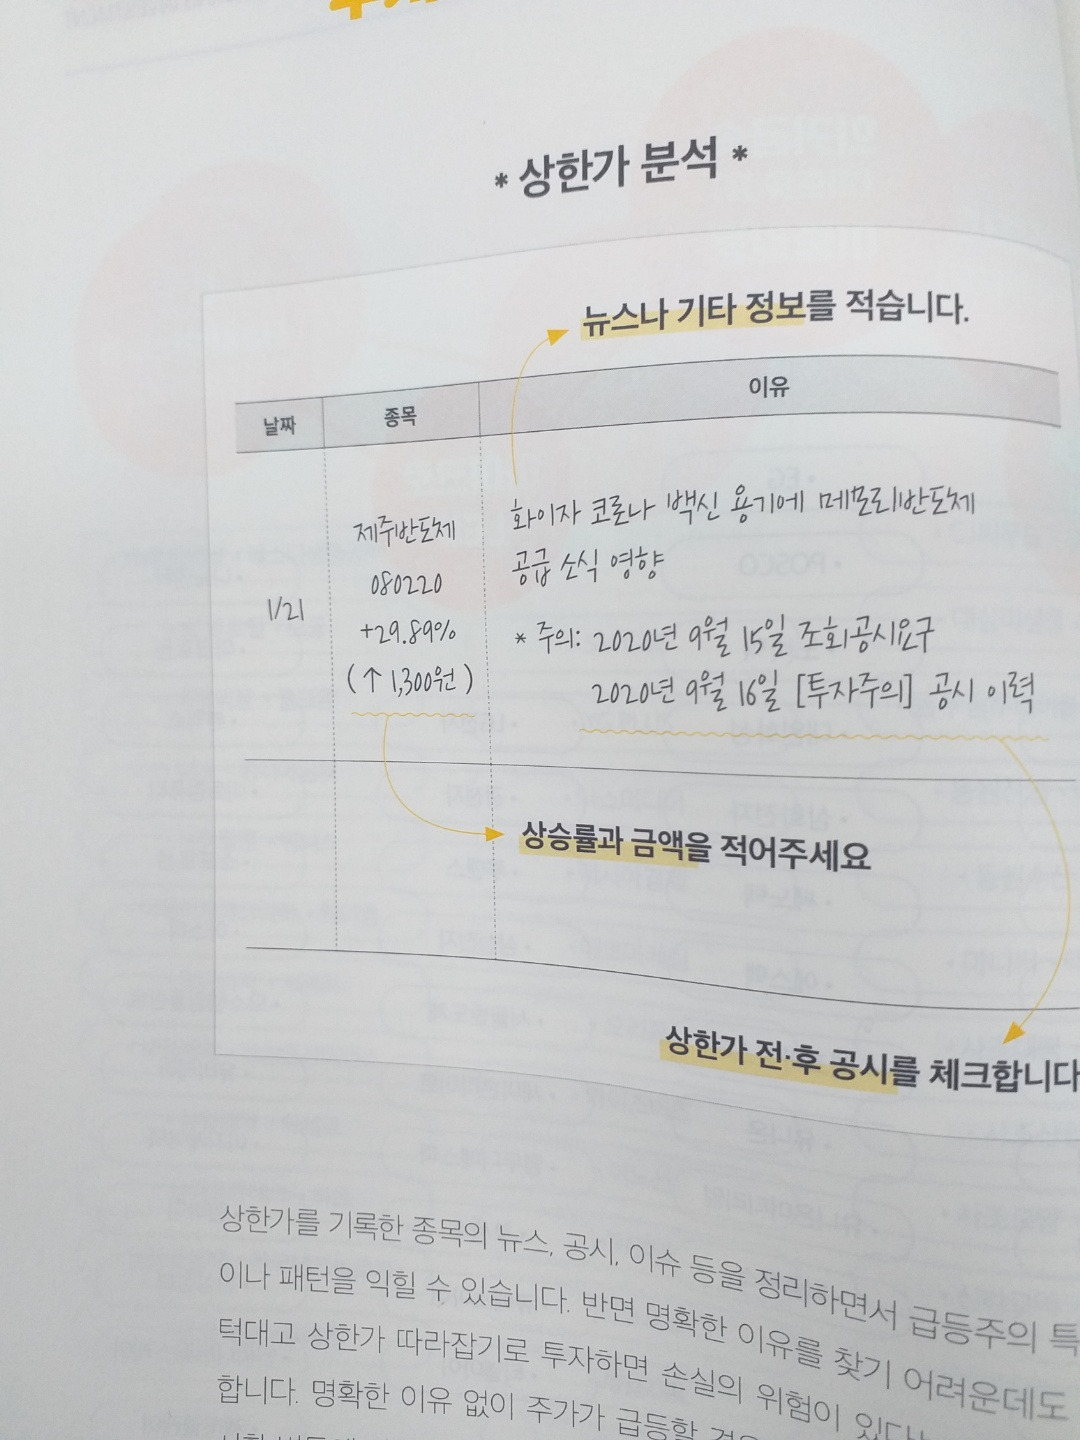 * 상한가 분석 *
뉴스나 기타 정보를 적습니다.
날짜 종목 이유
1/21
제주반도체
080220
+29.89%
(↑ 1,300원)
화이자 코로나 백신 용기에 메모리반도체
공급 소식 영향
* 주의: 2020년 9월 15일 조회공시요구
2020년 9월 16일 [투자주의] 공시 이력
상승률과 금액을 적어주세요
상한가 전·후 공시를 체크합니다
상한가를 기록한 종목의 뉴스, 공시, 이슈 등을 정리하면서 급등주의 특
이나 패턴을 익힐 수 있습니다. 반면 명확한 이유를 찾기 어려운데도
턱대고 상한가 따라잡기로 투자하면 손실의 위험이
합니다. 명확한 이유 없이 주가가 급등할